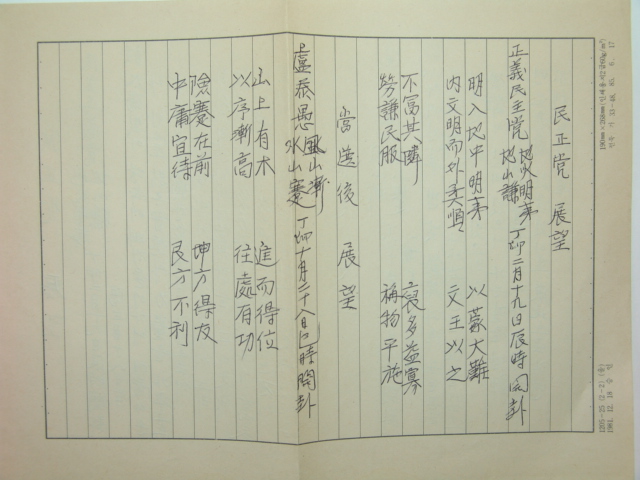 民正党 展望
正義民主党 地火明夷 地山謙 丁卯二月十九日辰時開卦
明入地中明夷 以蒙大難
内文明而外柔順 文王以之
不富其隣 裒多益寡
勞謙民服 稱物平施
當選後 展望
盧泰愚 風山漸 水山蹇 丁卯十月二十八日巳時開卦
山上有木 進而得位
以序漸高 往處有功
險蹇在前 坤方得友
中庸宜待 艮方不利